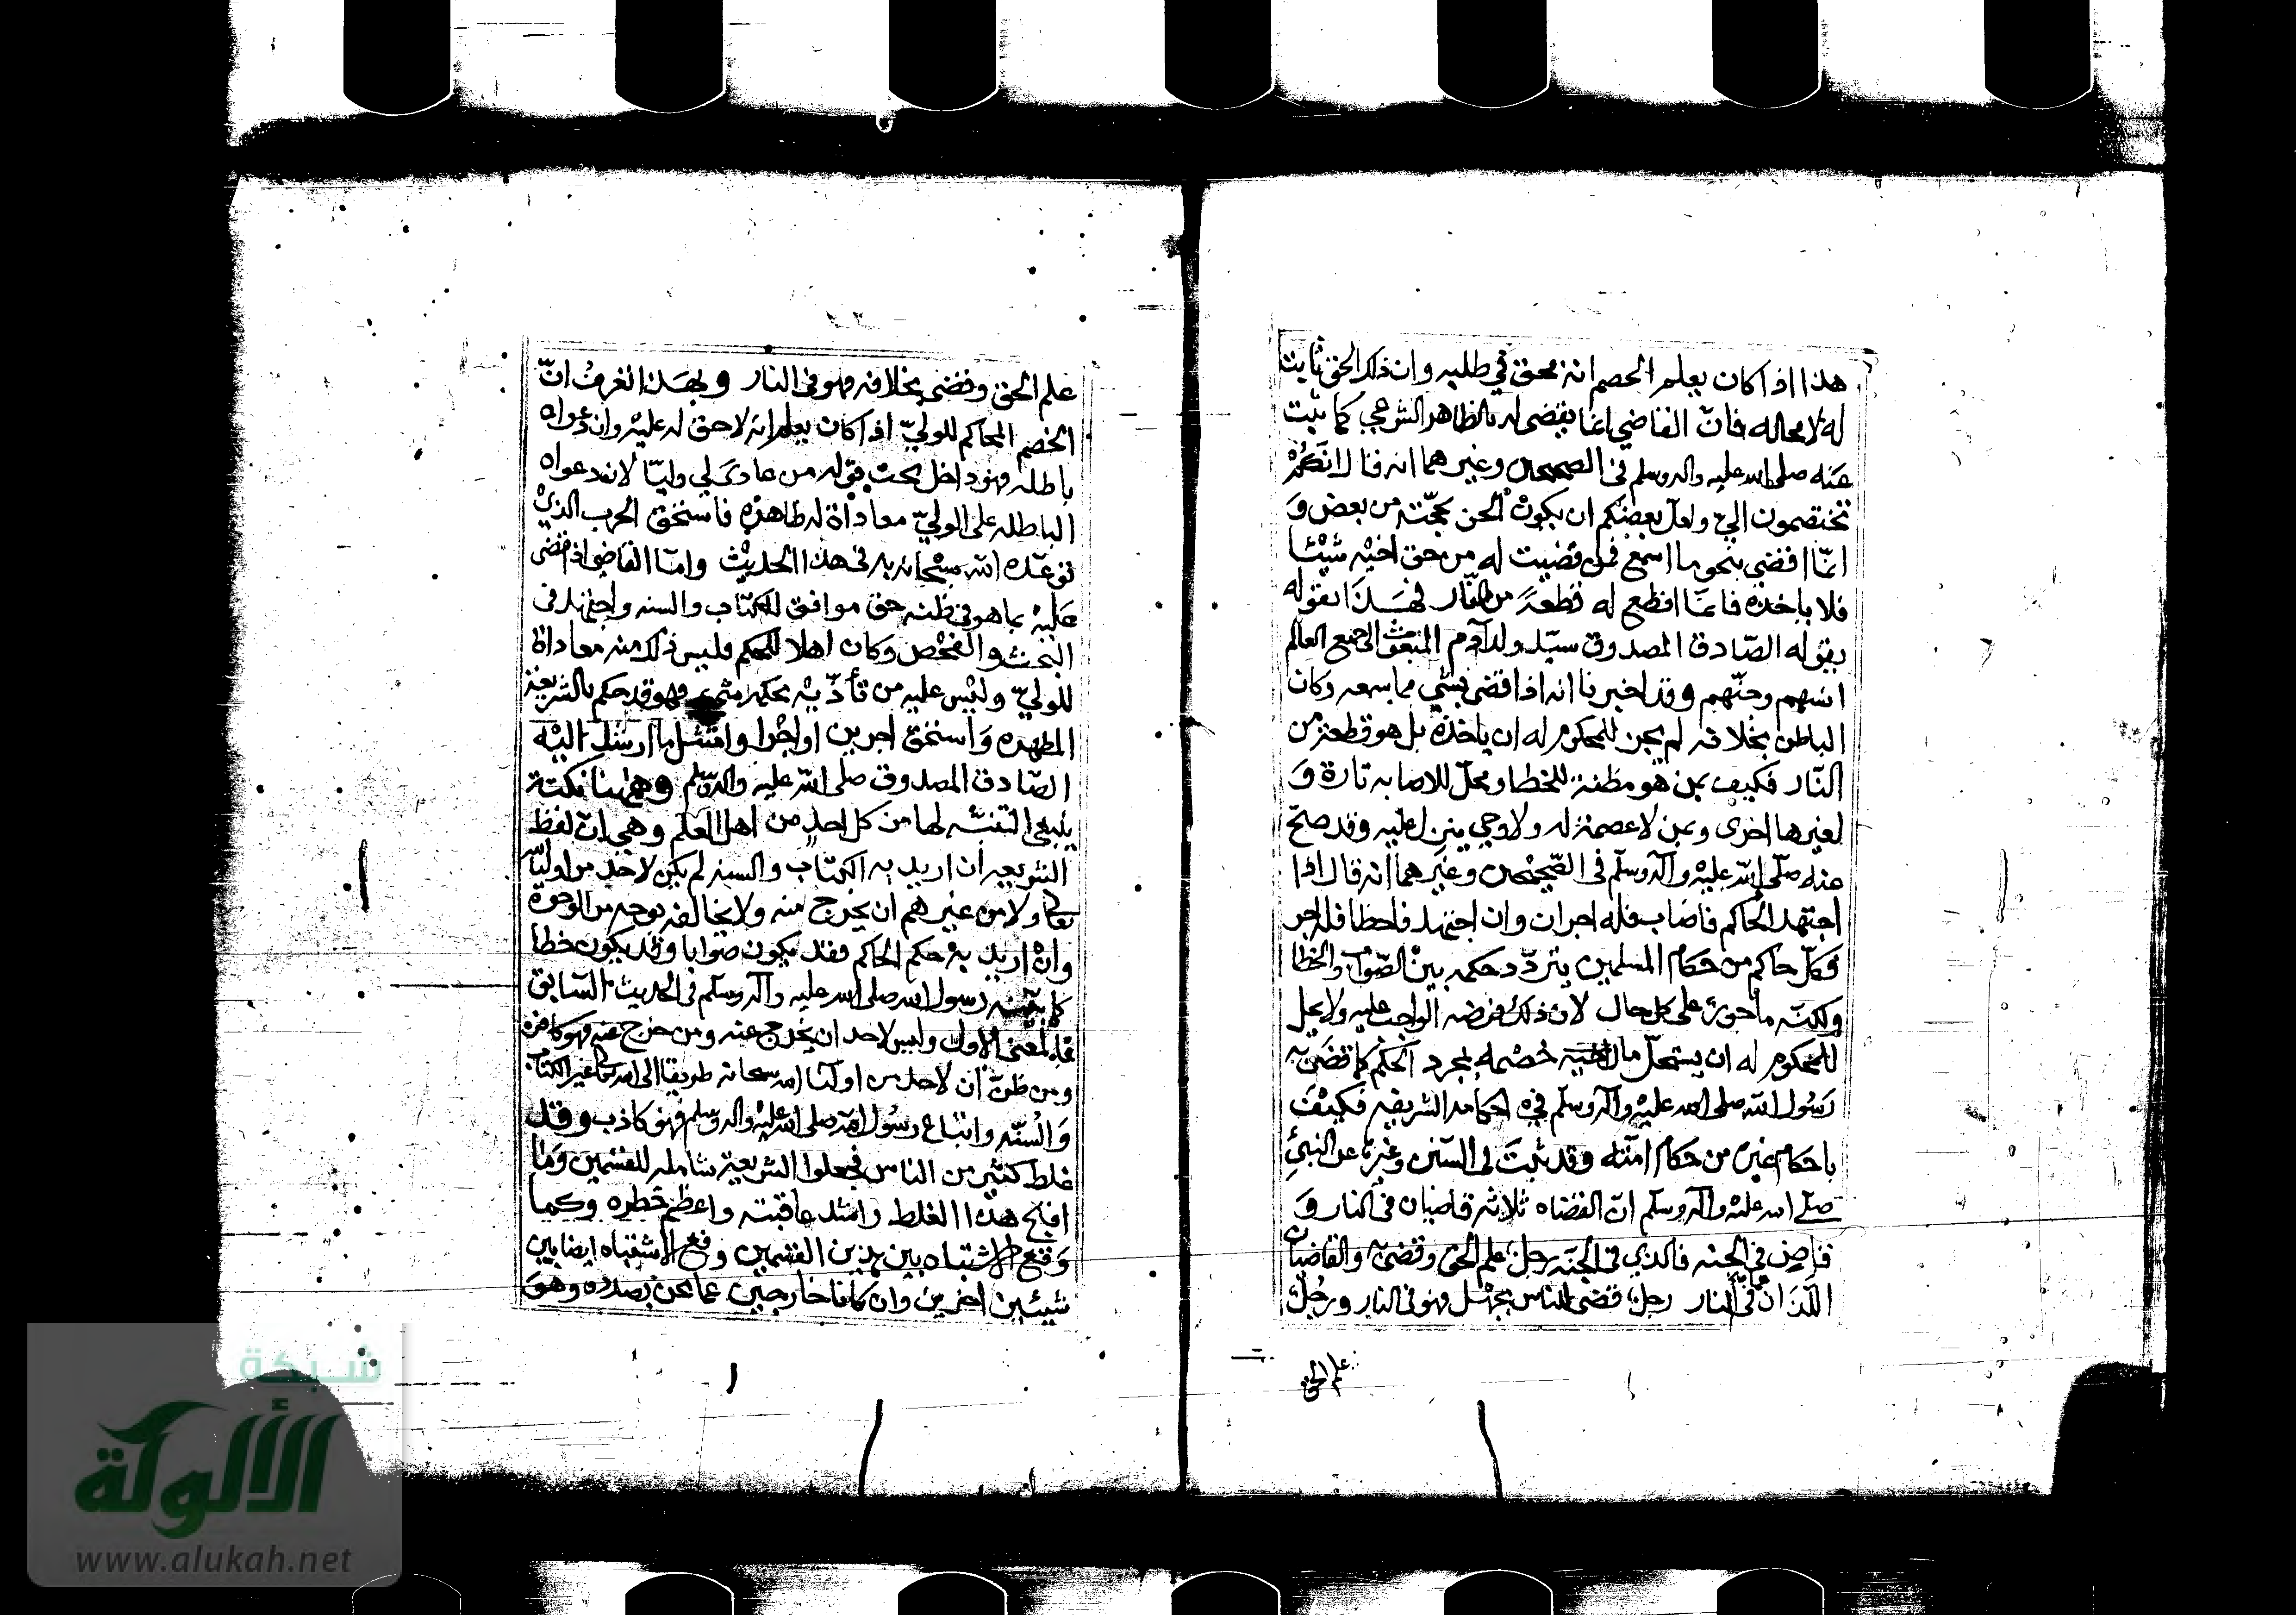 هذا اذا كان يعلم الخصم انه محق في طلبه وان ذلك الحق ثابت
له لا محاله فان القاضي انما يقضي له بالظاهر الشرعي كما ثبت
عنه صلى الله عليه واله وسلم في الصحيحين وغيرهما انه قال انكم
تختصمون الي ولعل بعضكم ان يكون الحن بحجته من بعض و
انما اقضي بنحو ما اسمع فمن قضيت له من حق اخيه شيئا
فلا ياخذه فانما اقطع له قطعة من النار فهذا يقوله
يقوله الصادق المصدوق سيد ولد ادم المبعوث الى جميع العالم
انسهم وجنهم وقد اخبرنا انه اذا قضى بشي مما سمعه وكان
الباطن بخلافه لم يجز للمحكوم له ان ياخذه بل هو قطعة من
النار فكيف بمن هو مظنة للخطا ومحل للاصابه تارة و
لغيرها اخرى وبمن لا عصمة له ولا وحي ينزل عليه وقد صح
عنه صلى الله عليه وآله وسلم في الصحيحين وغيرهما انه قال اذا
اجتهد الحاكم فاصاب فله اجران وان اجتهد فاخطا فله اجر
فكل حاكم من حكام المسلمين يتردد حكمه بين الصواب والخطا
ولكنه ماجور على كل حال لان ذلك فرضه الواجب عليه ولا يحل
للمحكوم له ان يستحل مال خصمه بمجرد الحكم كما قضى به
رسول الله صلى الله عليه وآله وسلم في احكامه الشريفه فكيف
باحكام غيره من حكام امته وقد ثبت في السنن وغيرها عن النبي
صلى الله عليه وآله وسلم ان القضاه ثلاثه قاضيان في النار و
قاض في الجنه فالذي في الجنه رجل علم الحق وقضى به والقاضيان
اللذان في النار رجل قضى للناس بجهل فهو في النار ورجل
علم الحق
علم الحق وقضى بخلافه فهو في النار وبهذا تعرف ان
الخصم المحاكم للولي اذا كان يعلم انه لا حق له عليه وان دعواه
باطله فهو داخل تحت قوله من عادى لي وليا لان دعواه
الباطله على الولي معاداة له ظاهرة فاستحق الحرب الذي
توعده الله سبحانه به في هذا الحديث واما القاضي اذا قضى
عليه بما هو في ظنه حق موافق للكتاب والسنه واجتهد في
البحث والفحص وكان اهلا للحكم فليس ذلك منه معاداة
للولي وليس عليه من تأذيه بحكمه شي فهو قد حكم بالشريعة
المطهره واستحق اجرين او اجرا وامتثل ما ارشد اليه
الصادق المصدوق صلى الله عليه واله وسلم وههنا نكتة
ينبغي التنبه لها من كل احد من اهل العلم وهي ان لفظ
الشريعه ان اريد به الكتاب والسنه لم يكن لاحد من اوليا الله
تعالى ولا من غيرهم ان يخرج منه ولا يخالفه بوجه من الوجوه
وان اريد به حكم الحاكم فقد يكون صوابا وقد يكون خطا
كما بينه رسول الله صلى الله عليه وآله وسلم في الحديث السابق
فالمعنى الاول وليس لاحد ان يخرج عنه ومن خرج عنه فهو كافر
ومن ظن ان لاحد من اوليا الله سبحانه طريقا الى الله تعالى غير الكتاب
والسنه واتباع رسول الله صلى الله عليه واله وسلم فهو كاذب وقد
غلط كثير من الناس فجعلوا الشريعة شامله للقسمين وما
اقبح هذا الغلط واشد عاقبته واعظم خطره وكما
وقع الاشتباه بين هذين القسمين وقع الاشتباه ايضا بين
شيئين اخرين وان كانا خارجين عما نحن بصدده وهو
شبكة
الألوكة
www.alukah.net